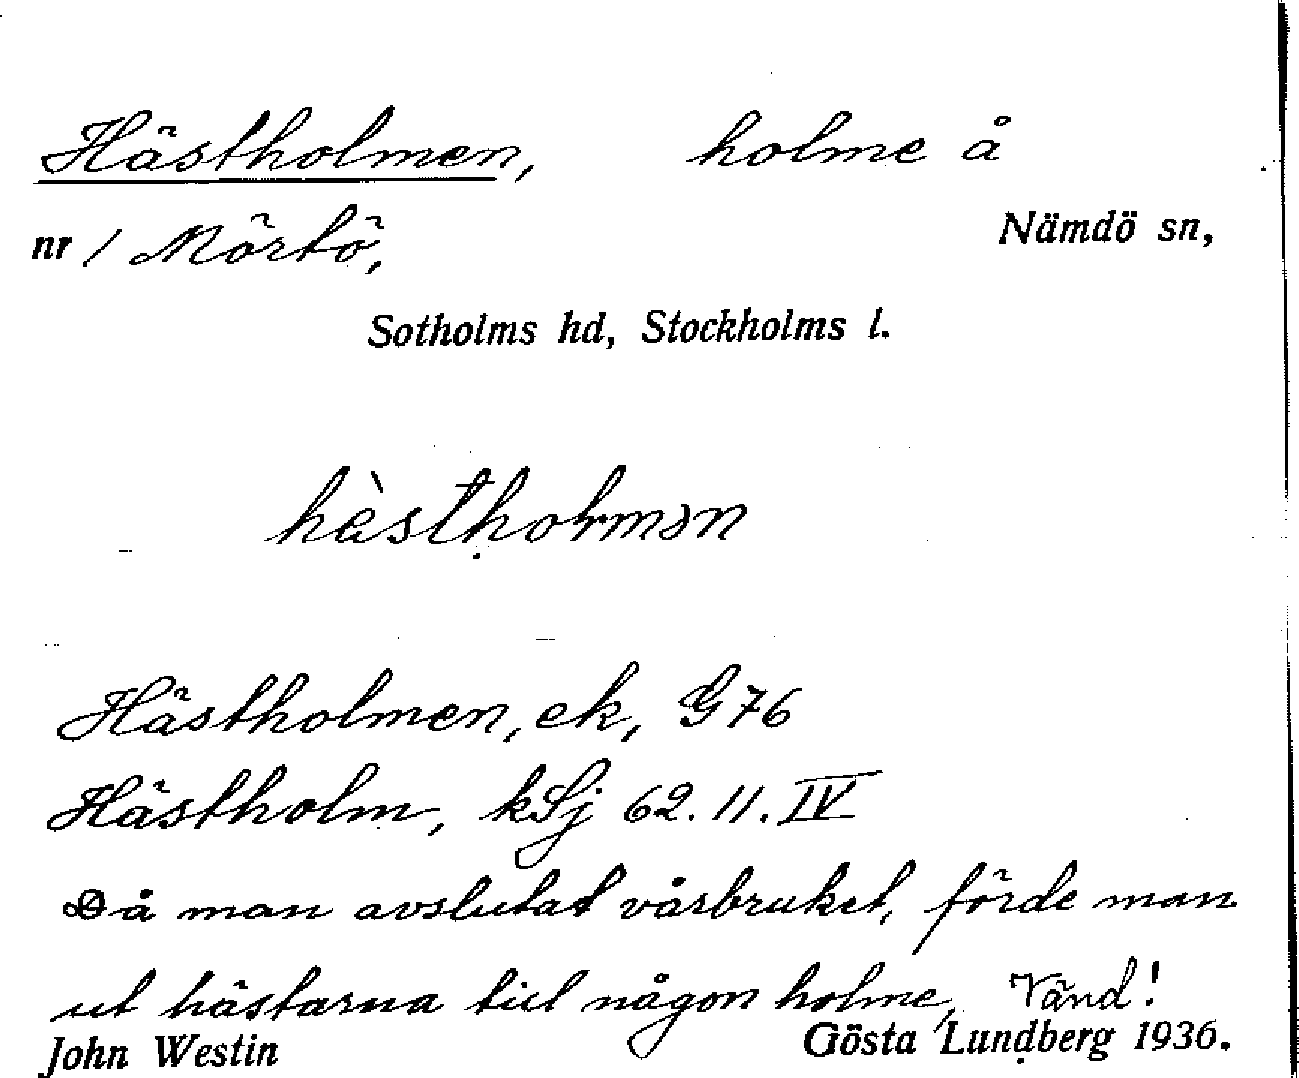 Hästholmen, holme å
nr 1 Mörtö, Nämdö sn,
Sotholms hd, Stockholms l.
hèstholmən
Hästholmen, ek, G76
Hästholm, kSj 62.11.IV
Då man avslutat vårbruket, förde man
ut hästarna till någon holme, Vänd!
John Westin Gösta Lundberg 1936.